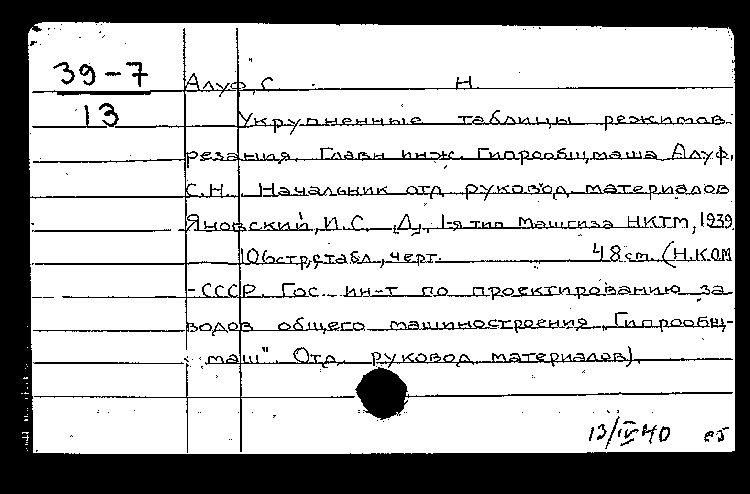 39-7
13
Алуф, С. Н.
Укрупненные таблицы режимов
резания. Главн инж. Гипрообщмаша Алуф,
С.Н. Начальник отд руковод. материалов
Яновский, И.С. Л., 1-я тип Машгиза НКТМ, 1939
106стр, табл., черт. 48 см. (Н.КОМ
-СССР. Гос. ин-т по проектированию за-
водов общего машиностроения „Гипрообщ-
маш". Отд. руковод материалов).
13/IV 40